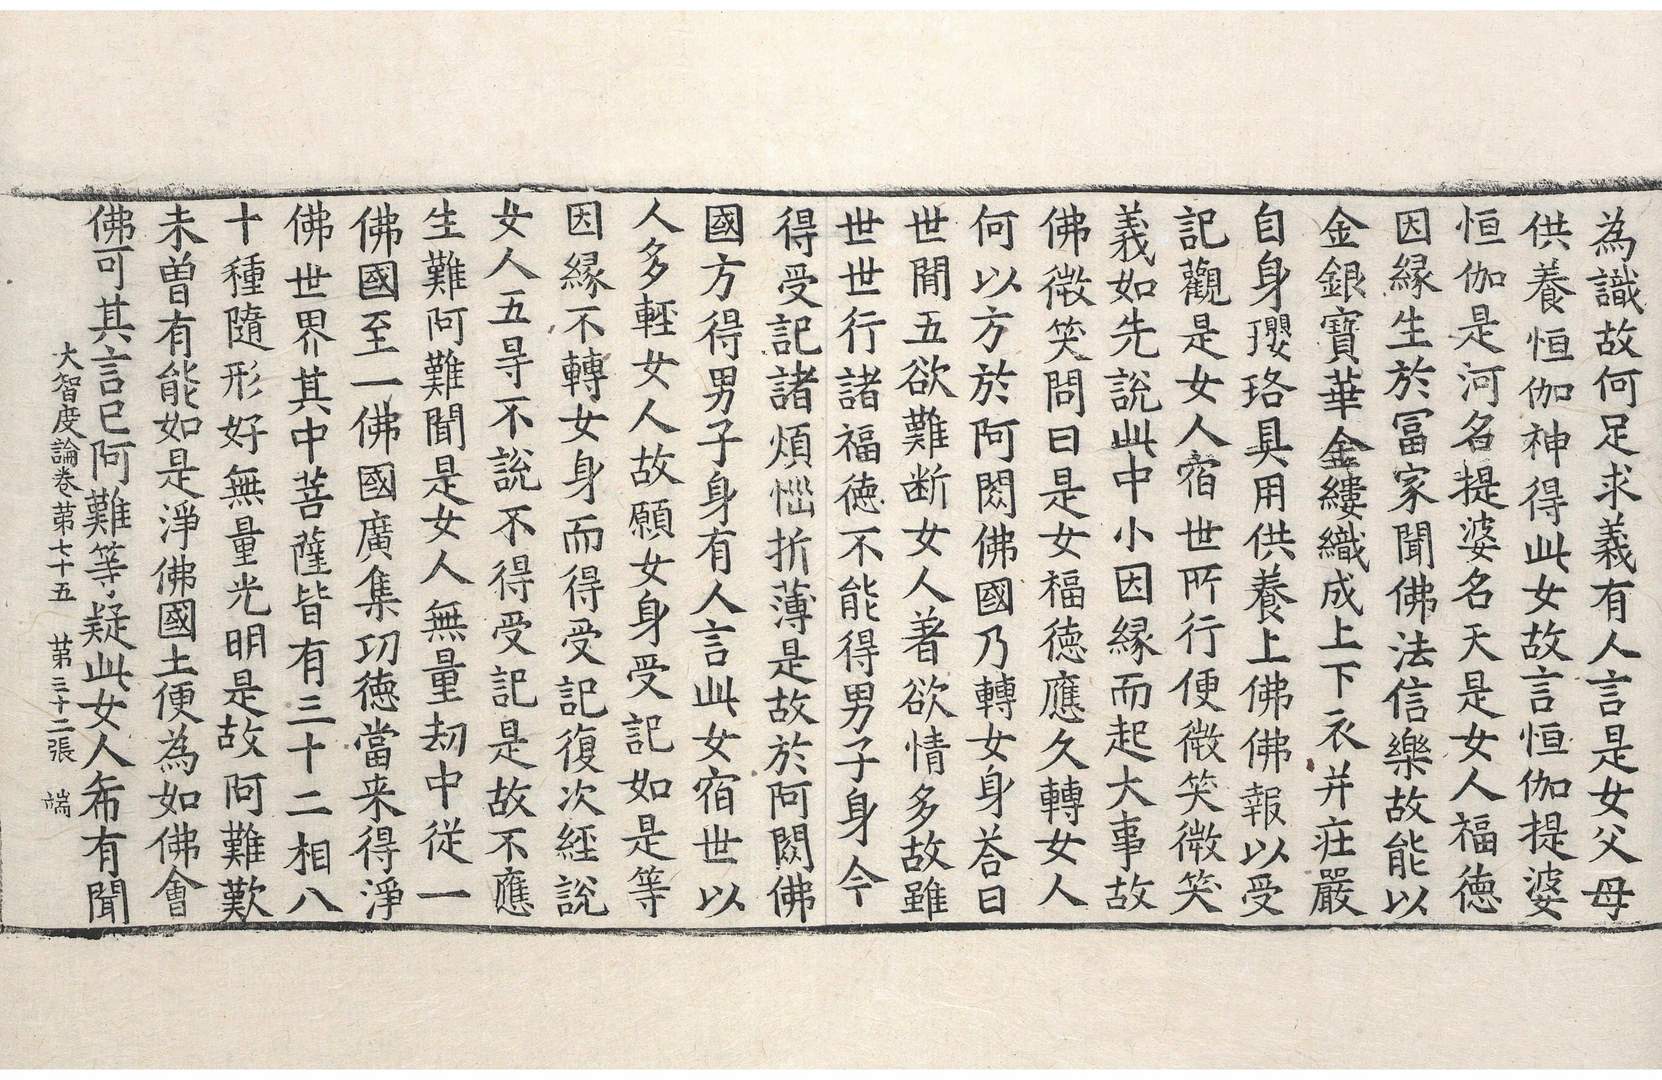 為識故何足求義有人言是女父母
供養恒伽神得此女故言恒伽提婆
恒伽是河名提婆名天是女人福德
因緣生於冨家聞佛法信樂故能以
金銀寶華金縷織成上下衣并庄嚴
自身瓔珞具用供養上佛佛報以受
記觀是女人宿世所行便微笑微笑
義如先說此中小因緣而起大事故
佛微笑問曰是女福德應久轉女人
何以方於阿閦佛國乃轉女身荅曰
世閒五欲難断女人著欲情多故雖
世世行諸福德不能得男子身今
得受記諸煩惱折薄是故於阿閦佛
國方得男子身有人言此女宿世以
人多輕女人故願女身受記如是等
因緣不轉女身而得受記復次經說
女人五㝵不說不得受記是故不應
生難阿難聞是女人無量劫中從一
佛國至一佛國廣集功德當来得淨
佛世界其中菩薩皆有三十二相八
十種隨形好無量光明是故阿難歎
未曽有能如是淨佛國土便為如佛會
佛可其言已阿難等疑此女人希有聞
大智度論卷第七十五 第三十二張 端